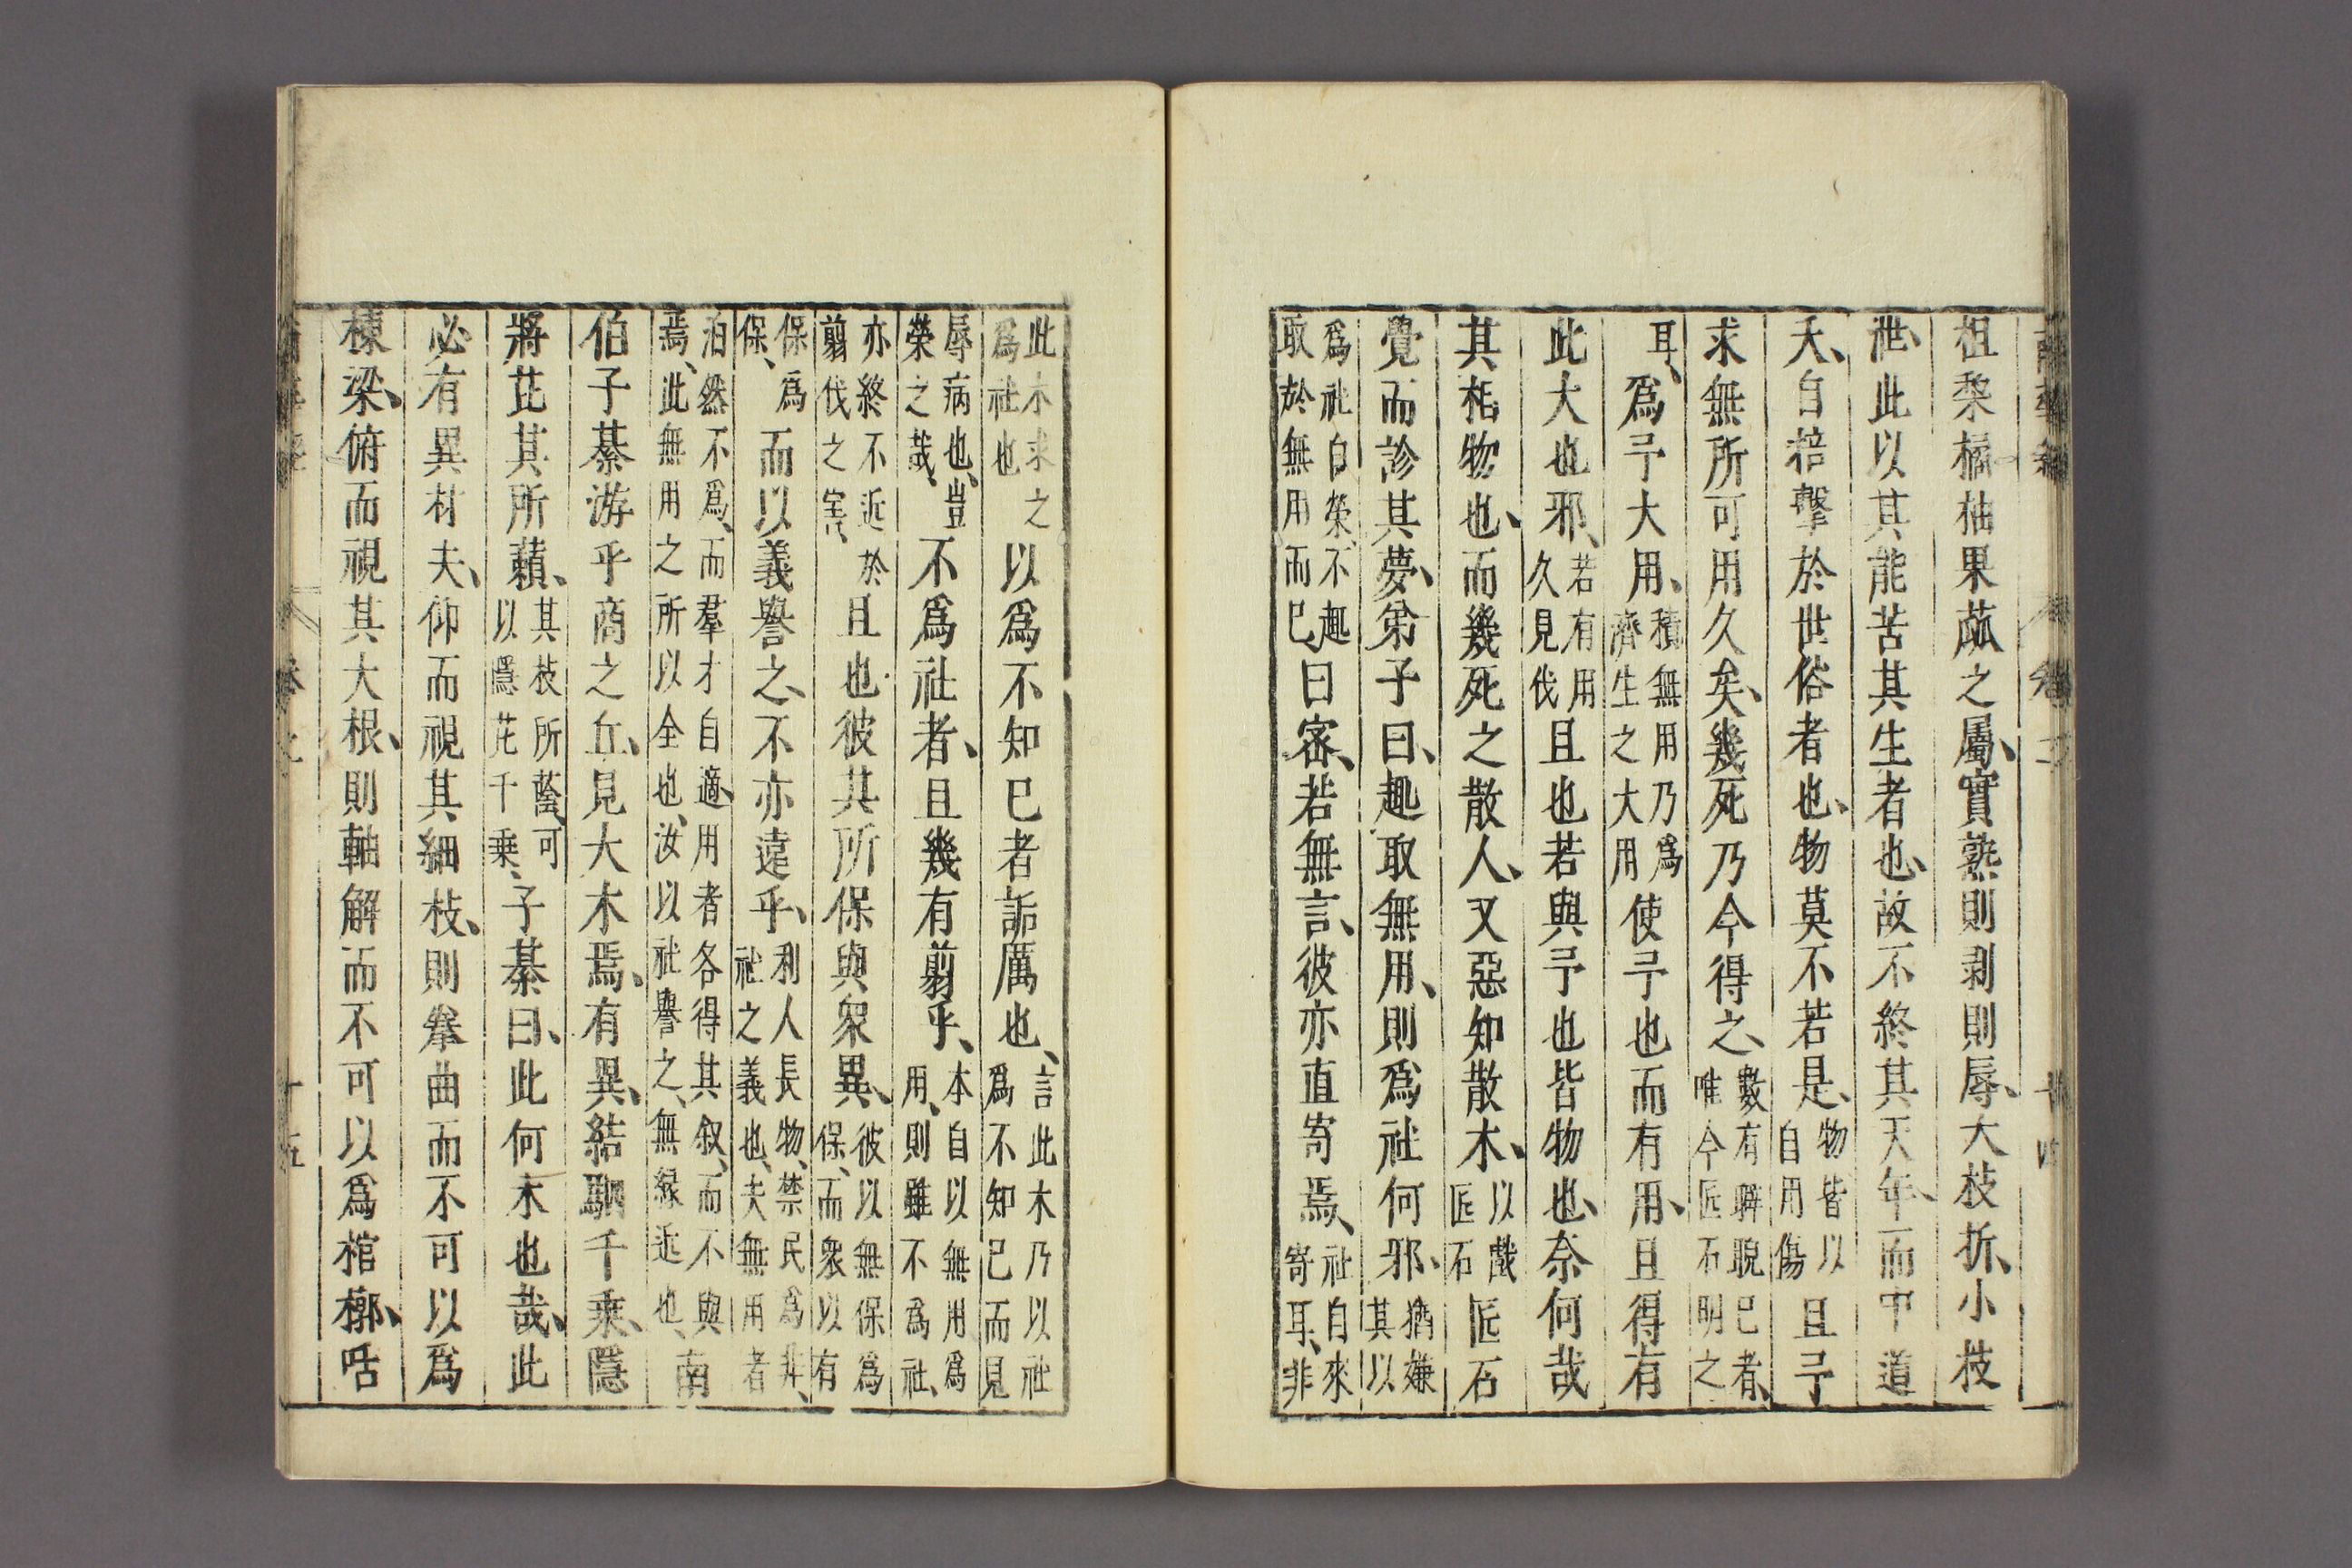 南華經 卷二 十四
柤棃橘柚果蓏之屬、實熟則剥則辱、大枝折、小枝
泄、此以其能苦其生者也、故不終其天年、而中道
夭、自掊擊於世俗者也、物莫不若是、物皆以自用傷且予
求無所可用久矣、幾死乃今得之、數有睥睨己者、唯今匠石明之
耳、爲予大用、積無用乃爲濟生之大用使予也而有用、且得有
此大也邪、若有用久見伐且也若與予也皆物也、奈何哉
其相物也、而幾死之散人、又惡知散木、以戲匠石匠石
覺而診其夢、弟子曰、趣取無用、則爲社何邪、猶嫌其以
爲社自榮、不趣取於無用而已曰密、若無言、彼亦直寄焉、社自來寄耳、非
此木求之爲社也以爲不知已者詬厲也、言此木乃以社爲不知已而見
辱病也、豈榮之哉、不爲社者、且幾有翦乎、本自以無用爲用、則雖不爲社、
亦終不近於翦伐之害、且也彼其所保與衆異、彼以無保爲保、而衆以有
保爲保、而以義譽之、不亦遠乎、利人長物、禁民爲非、社之義也、夫無用者
泊然不爲、而羣才自適、用者各得其叙、而不與焉、此無用之所以全也、汝以社譽之、無緣近也、南
伯子綦游乎商之丘、見大木焉、有異、結駟千乘、隱
將芘其所藾、其枝所蔭、可以隱芘千乘、子綦曰、此何木也哉、此
必有異材夫、仰而視其細枝、則拳曲而不可以爲
棟梁、俯而視其大根、則軸解而不可以爲棺槨、咶
卷之 十五